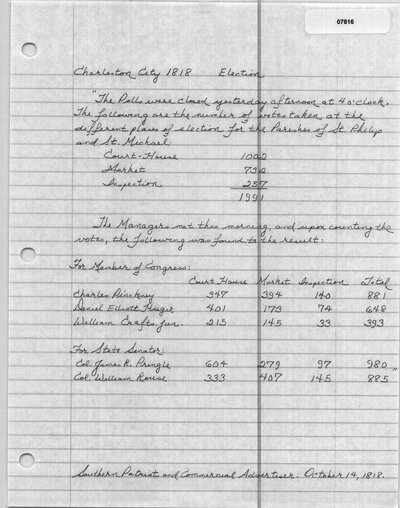 07816
Charleston City 1818 Election
"The Polls were closed yesterday afternoon at 4 o'clock.
The following are the number of votes taken at the
different places of election for the Parishes of St. Philip
and St. Michael:
Court-House 1002
Market 732
Inspection 257
1991
The Managers met this morning, and upon counting the
votes, the following was found to the result:
For Member of Congress:
Court House Market Inspection Total
Charles Pinckney 347 394 140 881
Daniel Elliott Huger 401 173 74 648
William Crafts, Jun. 215 145 33 393
For State Senator:
Col. James R. Pringle 604 279 97 980
Col. William Rouse 333 407 145 885 "
Southern Patriot and Commercial Advertiser. October 14, 1818.